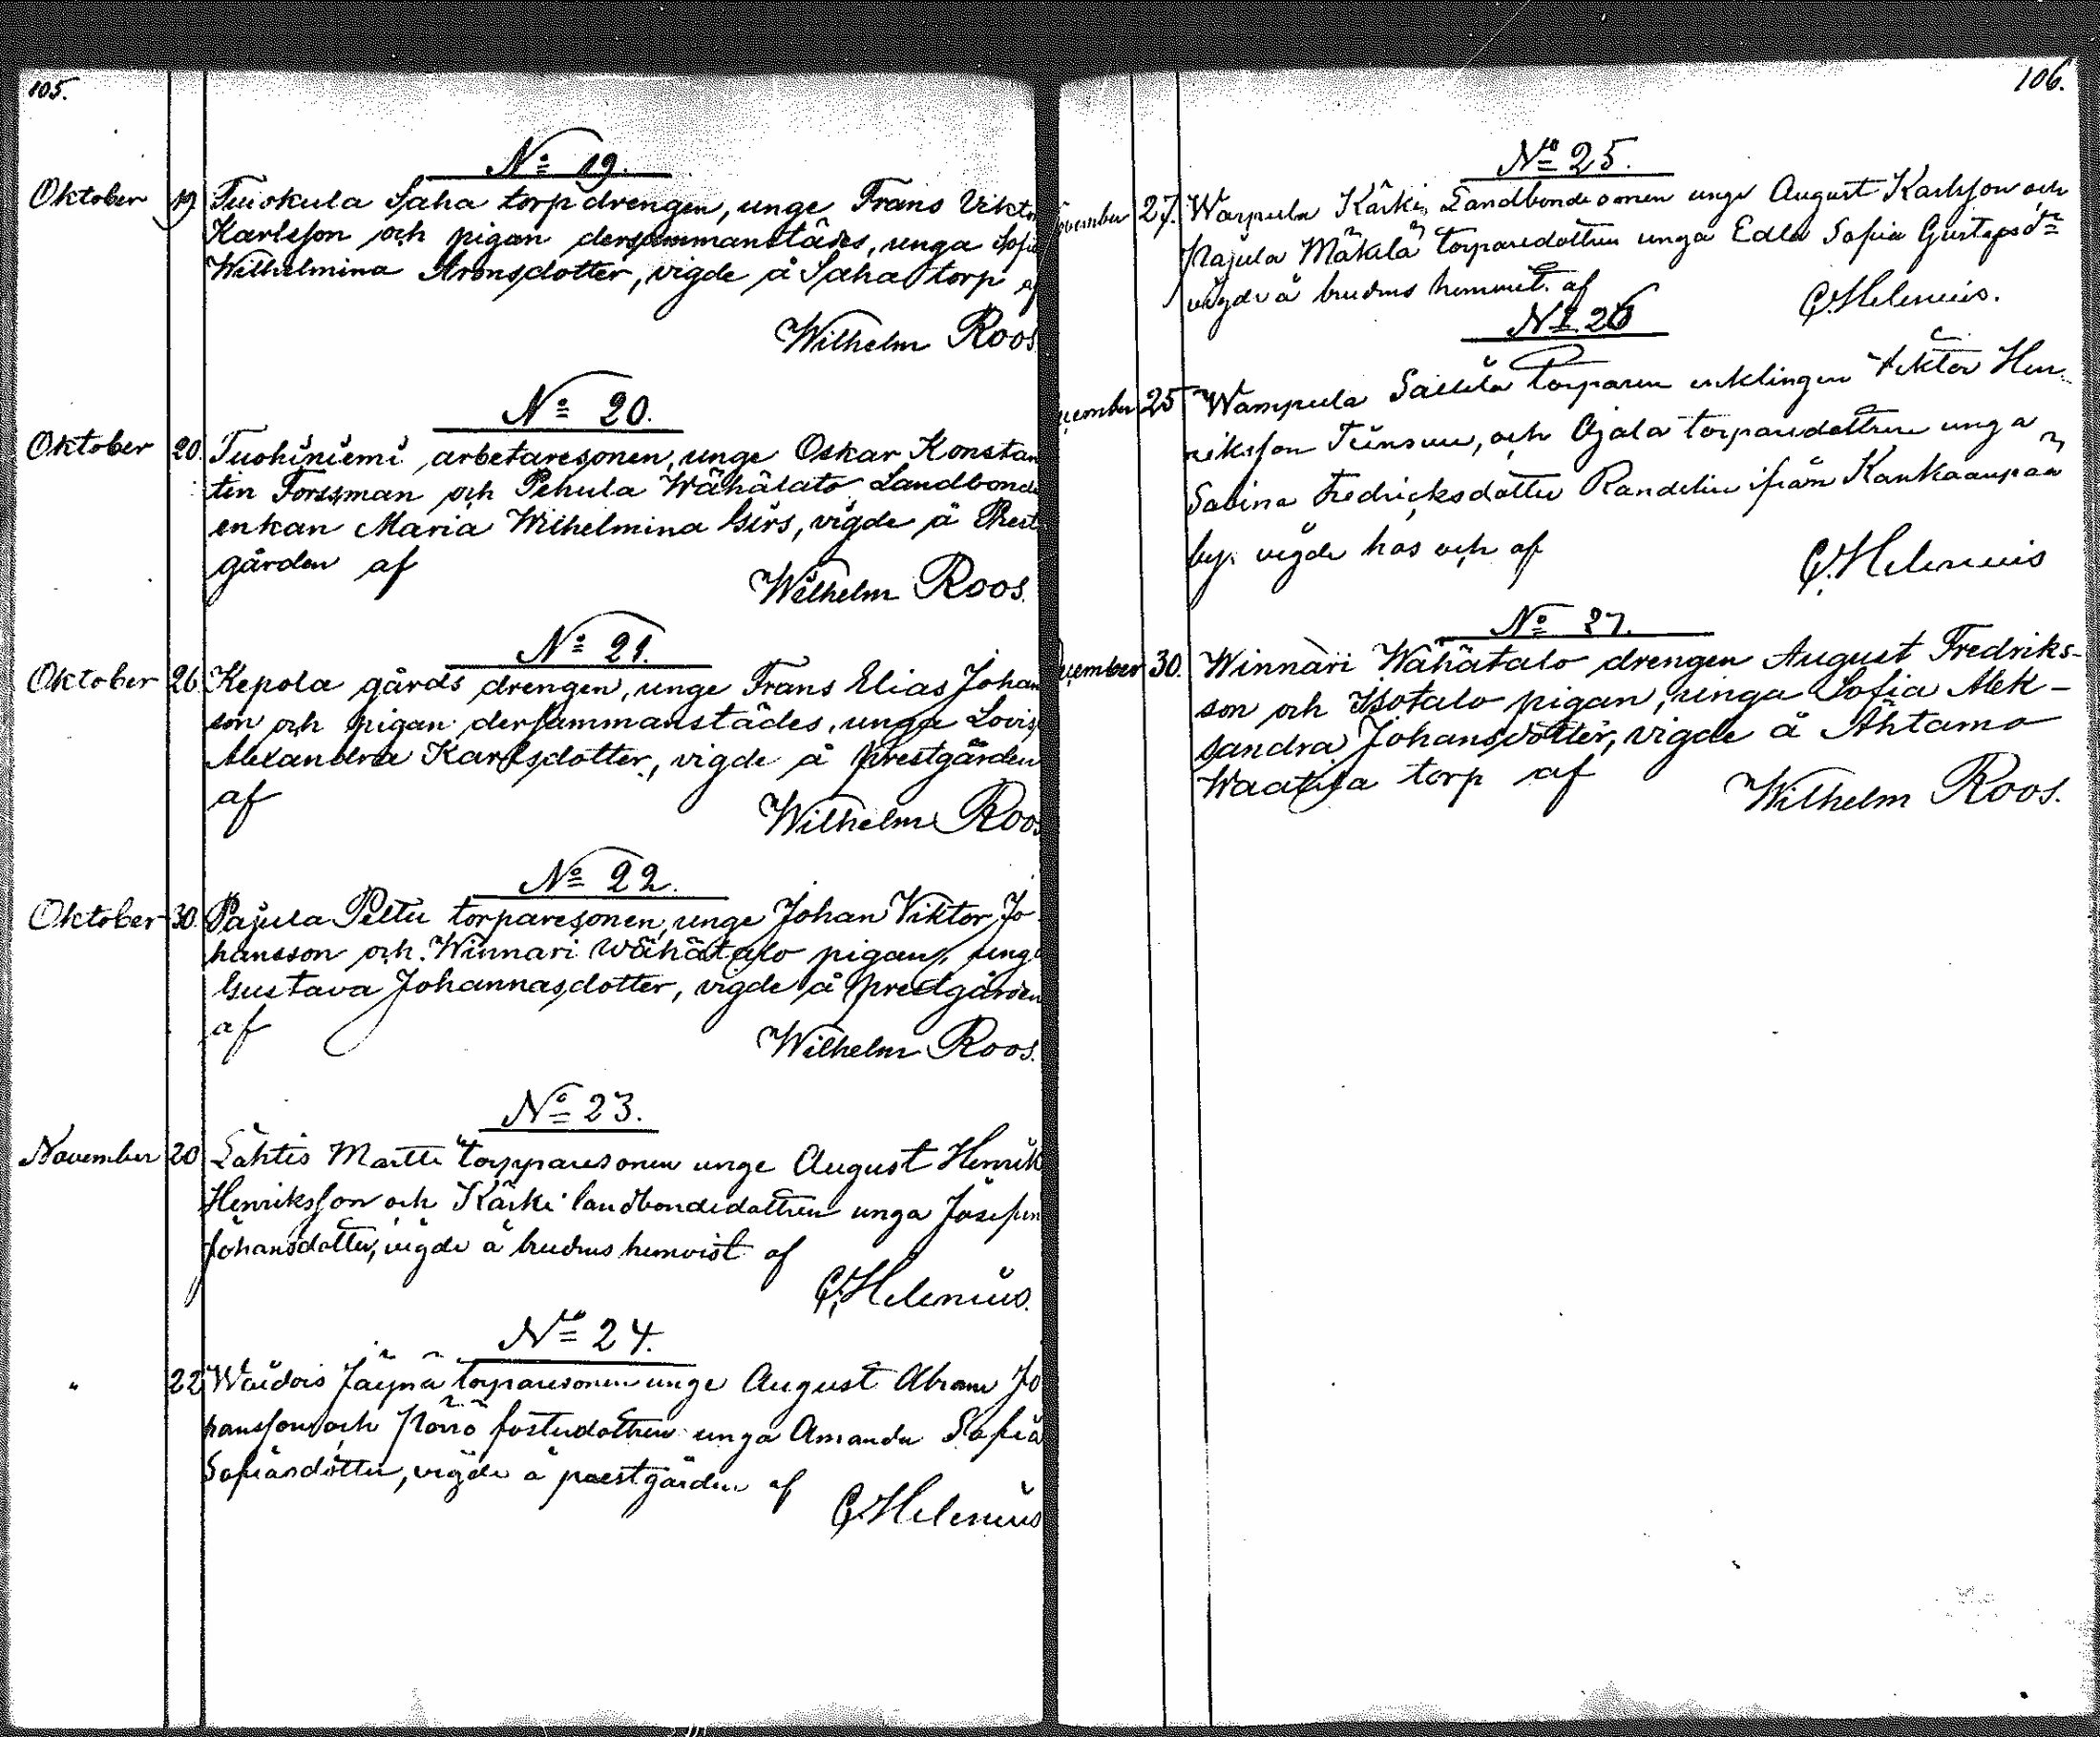 105.
No 19.
Oktober 19 Tuiskula Saha torp drengen, unge Frans Vikto
Karlsson och pigan dersammanstädes, unga Sofia
Wilhelmina Aronsdotter, vigde å Saha torp af
Wilhelm Roos
No 20.
Oktober 20. Tuohiniemi arbetaresonen, unge Oskar Konstan
tin Forssman och Pehula Wähälato Landbonde
enkan Maria Wilhelmina Girs, vigde å Prest
gården af
Wilhelm Roos.
No 21.
Oktober 26 Kepola gårds drengen, unge Frans Elias Johan
son och pigan dersammanstädes, unga Lovis
Alexandra Karlsdotter, vigde å prestgården
af
Wilhelm Roos
No 22.
Oktober 30. Pajula Peltu torparesonen, unge Johan Viktor Jo
hansson och Winnari Wähätalo pigan, unga
Gustava Johannasdotter, vigde å prestgården
af
Wilhelm Roos.
No 23.
November 20 Lähtis Martti torpparesonen unge August Henrik
Henriksson och Kärki landbondedottren unga Josefin
Johansdotter, vigde å brudens hemvist af
Helenius.
No 24.
" 22 torparesonen unge August Abram Jo
hansson och fosterdottren unga Amanda Sofia
Sofiasdotter, vigde å prestgården af
Helenius
106.
No 25.
ovember 27. Warpula Kärki Landbondesonen unge August Karlsson och
Pajula Mäkilä torparedottren unga Edla Sofia Gustafsdr
vigde å brudens hemvist af Helenius.
No 26
cember 25 Wampula torparen enklingen Viktor Hen
riksson och Ojala torparedottren unga
Sabina Fredricksdotter Randelin ifrån Kankaanpää
by. vigde hos och af
Helenius
No 27.
cember 30. Winnari Wähätalo drengen August Fredriks-
son och Isotalo pigan, unga Sofia Alek-
sandra Johansdotter, vigde å Ahtamo
torp af
Wilhelm Roos.